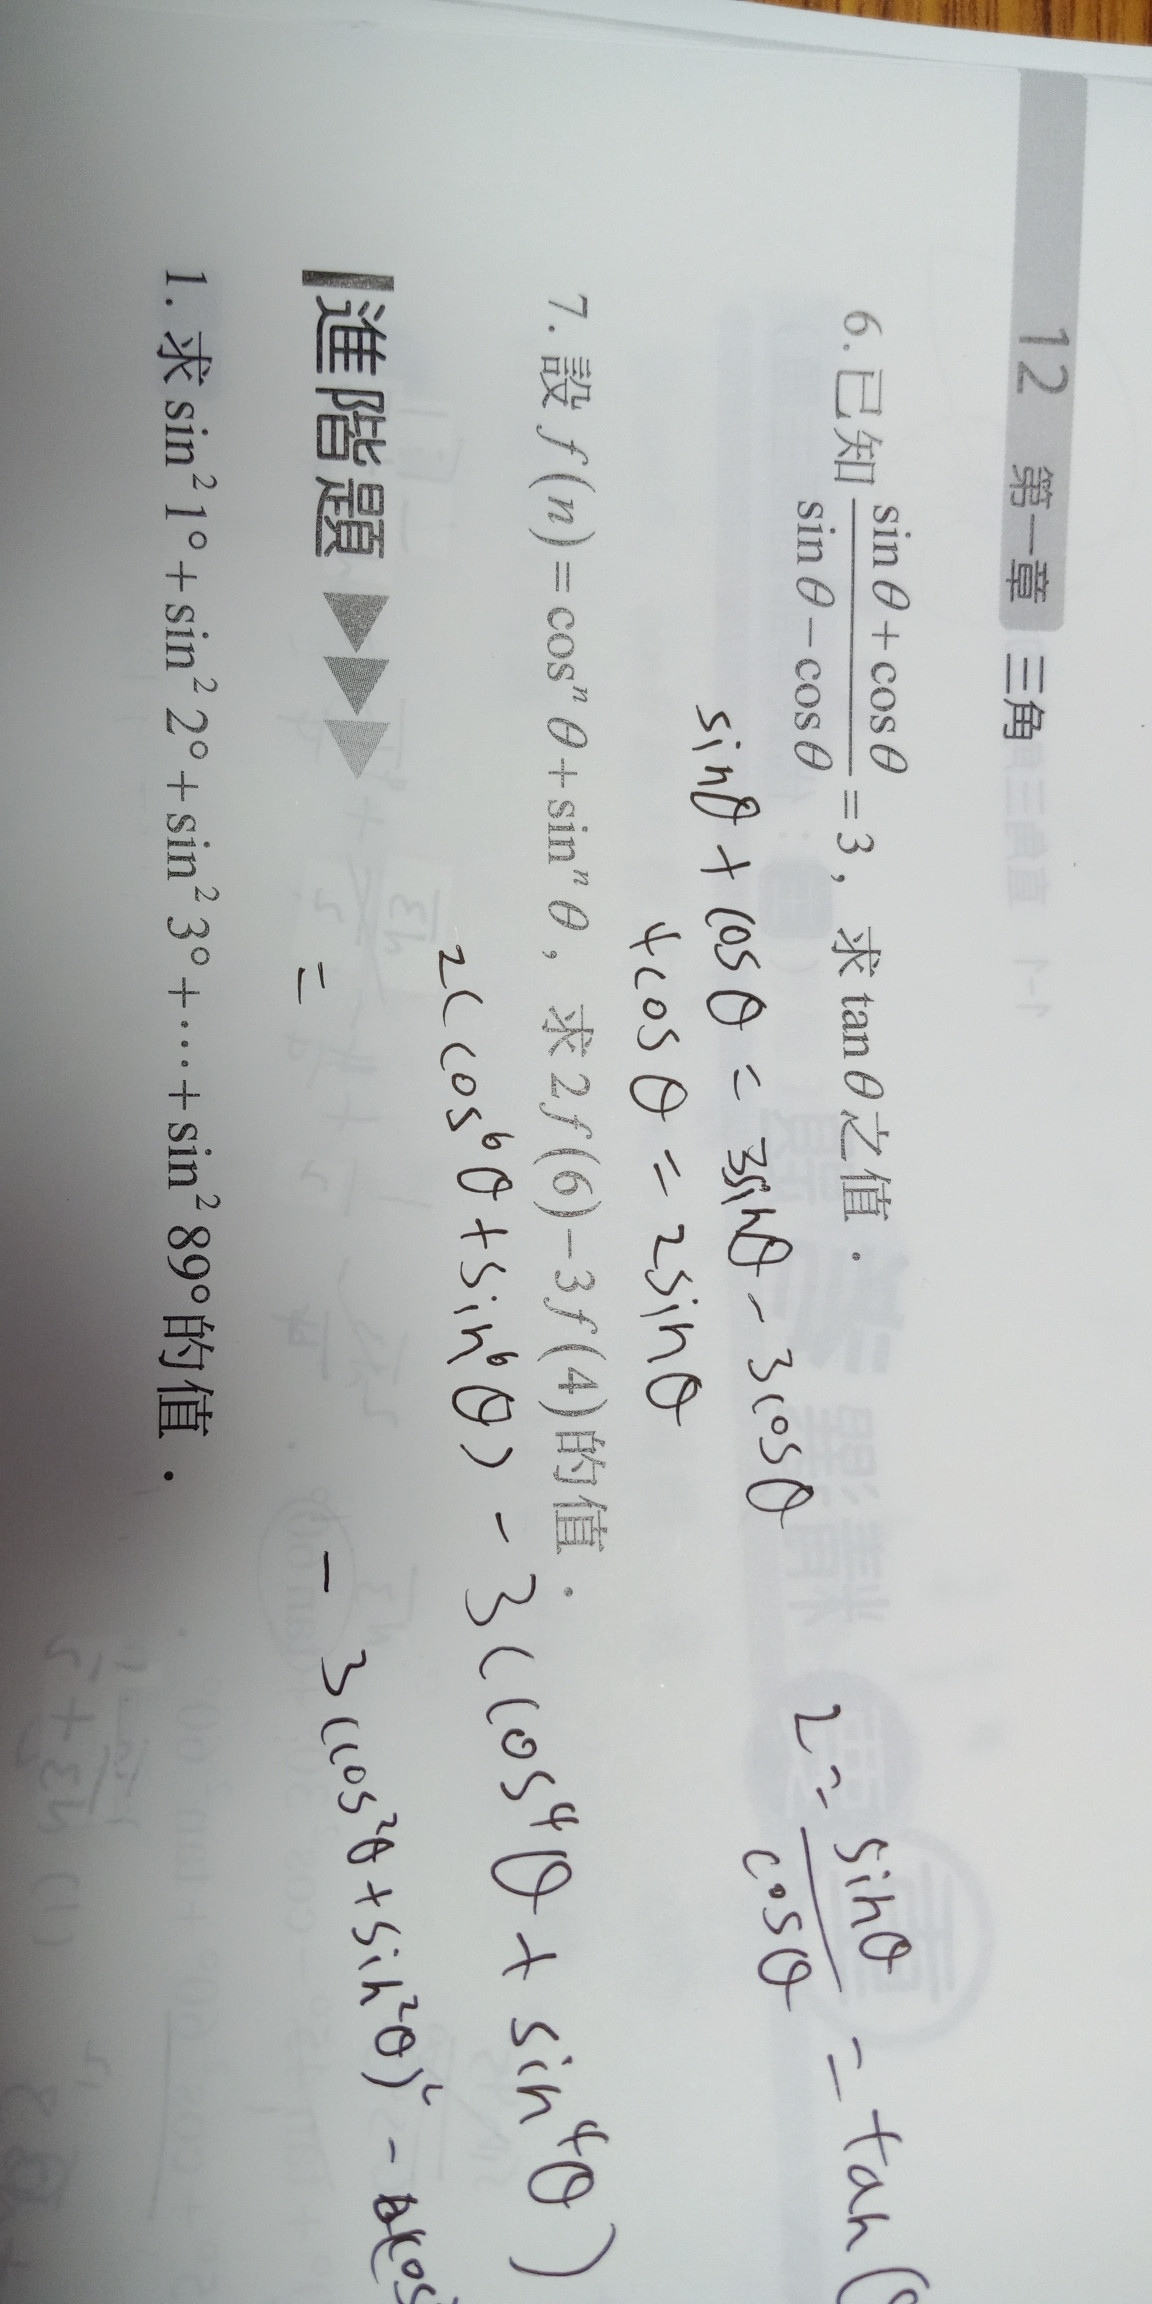 12 第一章 三角
6. 已知 (sinθ+cosθ)/(sinθ−cosθ) =3, 求 tanθ之值.
2 = sinθ/cosθ = tan
sinθ + cosθ = 3sinθ − 3cosθ
4cosθ = 2sinθ
7. 設 f(n)=cosⁿθ+sinⁿθ, 求 2f(6)−3f(4)的值.
2(cos⁶θ+sin⁶θ) − 3(cos⁴θ + sin⁴θ)
= − 3(cos²θ+sin²θ)² −
進階題 ▶▶▶
1. 求 sin²1°+sin²2°+sin²3°+⋯+sin²89°的值.